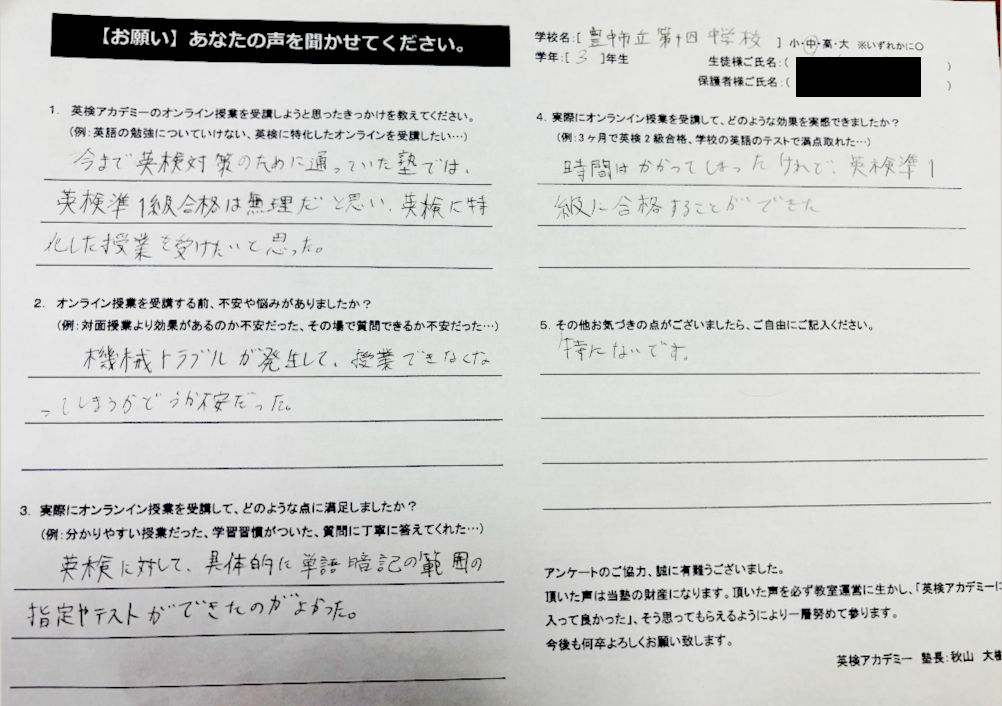 【お願い】あなたの声を聞かせてください。
学校名:[ 豊中市立第十四中学校 ] 小・中・高・大 ※いずれかに○
学年:[ 3 ]年生
生徒様ご氏名:( )
保護者様ご氏名:( )
1. 英検アカデミーのオンライン授業を受講しようと思ったきっかけを教えてください。
(例:英語の勉強についていけない、英検に特化したオンラインを受講したい…)
今まで英検対策のために通っていた塾では、
英検準1級合格は無理だと思い、英検に特
化した授業を受けたいと思った。
2. オンライン授業を受講する前、不安や悩みがありましたか?
(例:対面授業より効果があるのか不安だった、その場で質問できるか不安だった…)
機械トラブルが発生して、授業できなくな
ってしまうかどうか不安だった。
3. 実際にオンランイン授業を受講して、どのような点に満足しましたか?
(例:分かりやすい授業だった、学習習慣がついた、質問に丁寧に答えてくれた…)
英検に対して、具体的に単語暗記の範囲の
指定やテストができたのがよかった。
4. 実際にオンライン授業を受講して、どのような効果を実感できましたか?
(例:3ヶ月で英検2級合格、学校の英語のテストで満点取れた…)
時間はかかってしまったけれど、英検準1
級に合格することができた
5. その他お気づきの点がございましたら、ご自由にご記入ください。
特にないです。
アンケートのご協力、誠に有難うございました。
頂いた声は当塾の財産になります。頂いた声を必ず教室運営に生かし、「英検アカデミーに
入って良かった」、そう思ってもらえるようにより一層努めて参ります。
今後も何卒よろしくお願い致します。
英検アカデミー 塾長:秋山 大樹